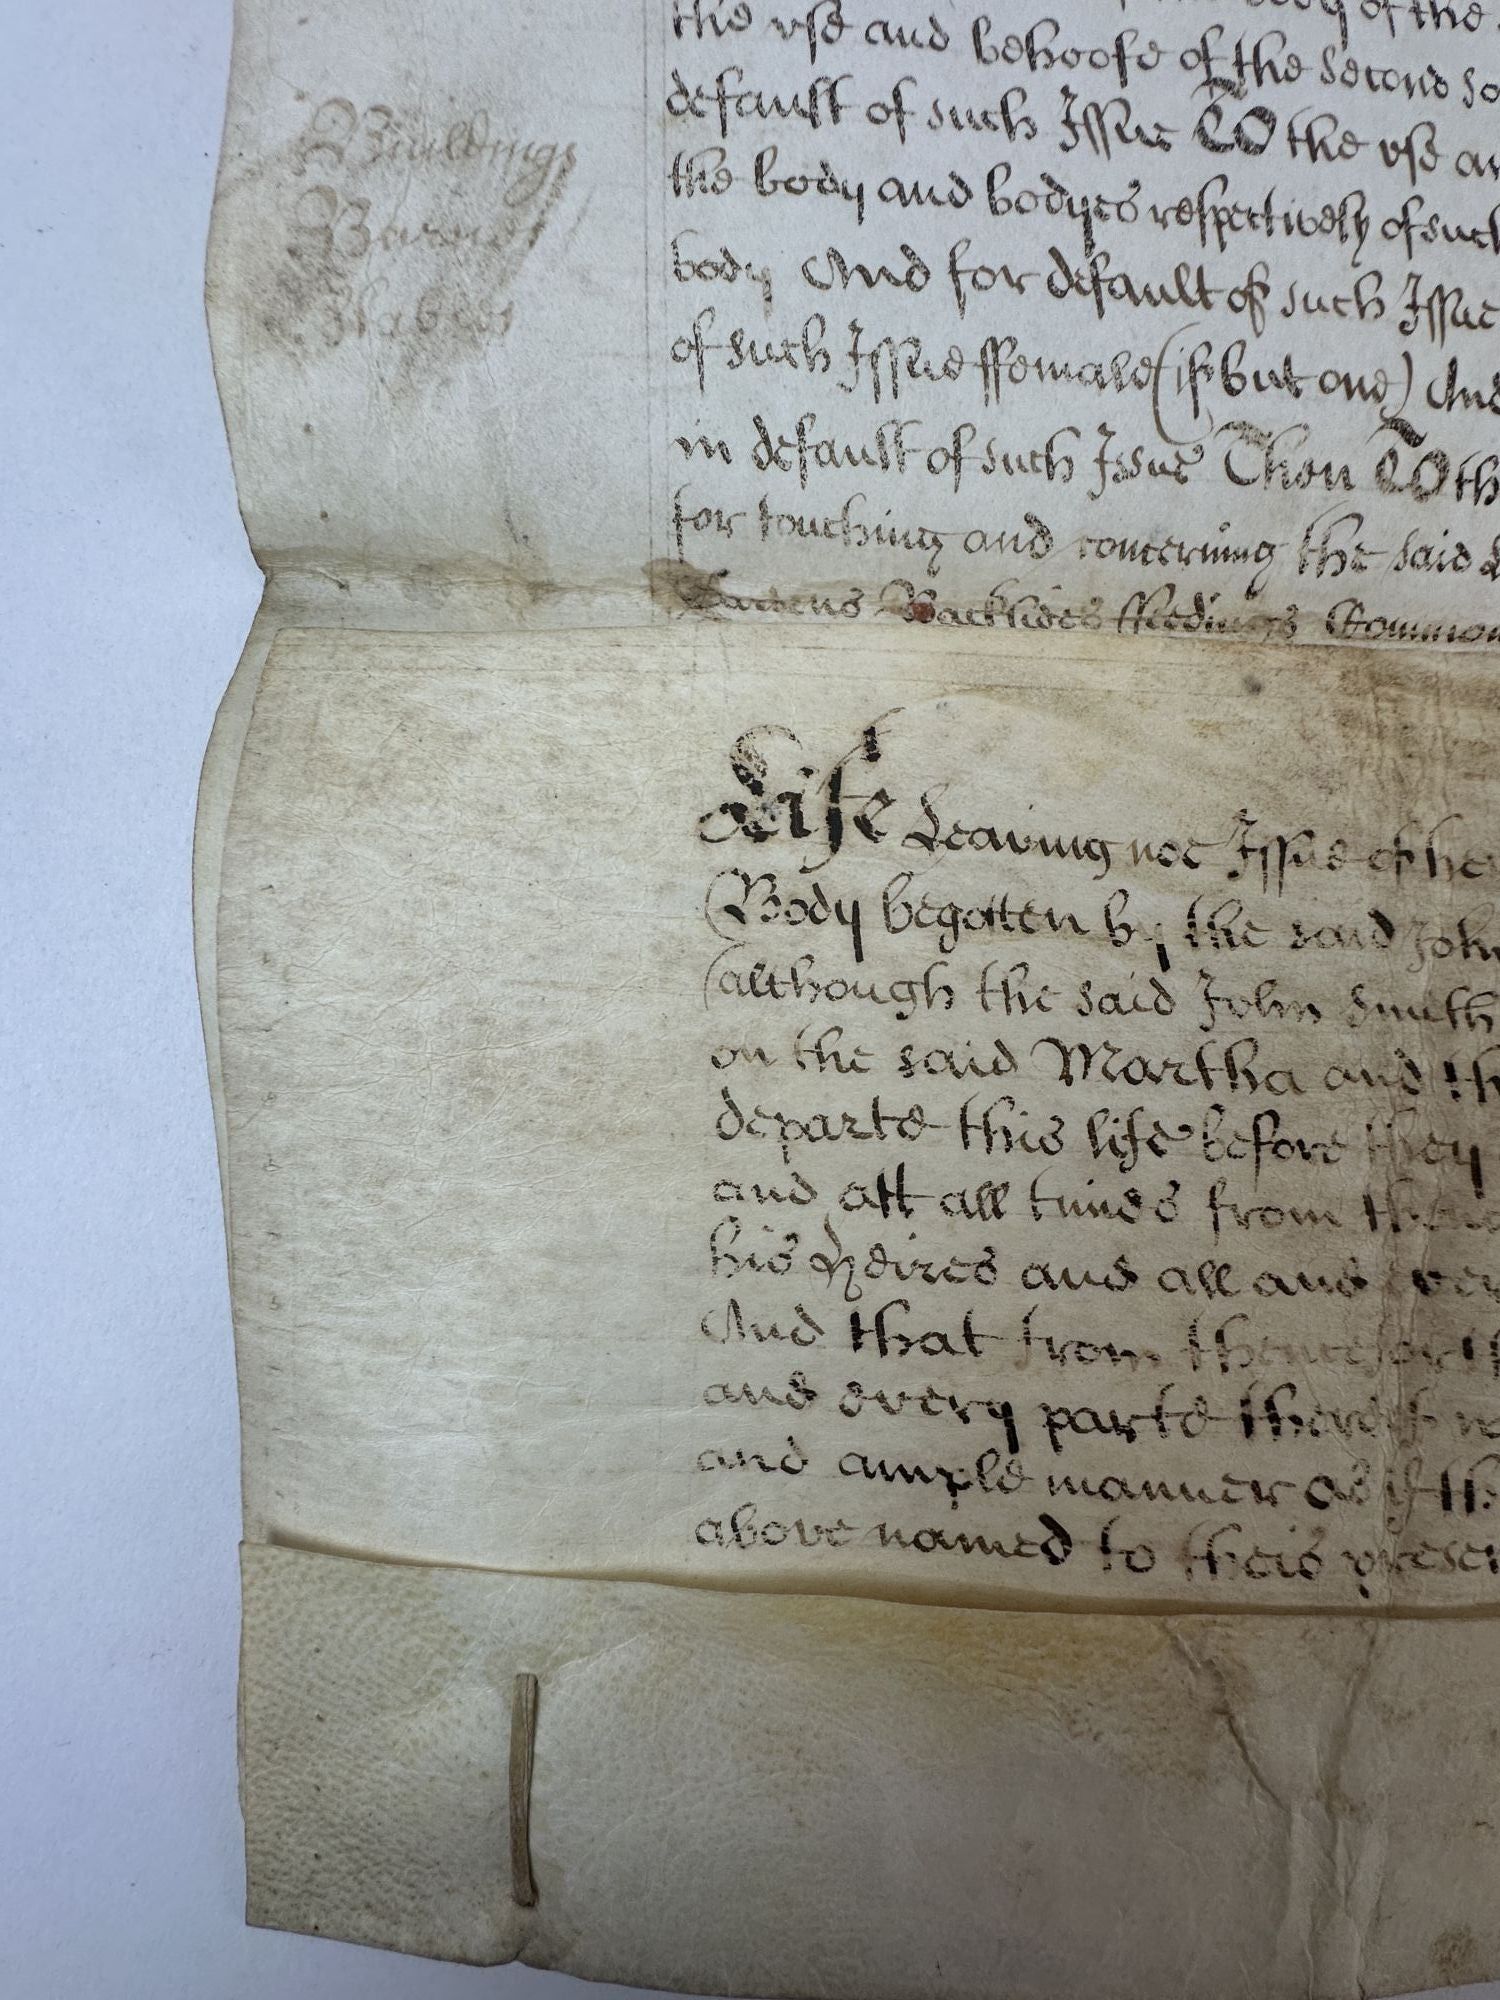 body of the
the use and behoofe of the second so
default of such Issue TO the use an
the body and bodyes respectively of such
body And for default of such Issue
of such Issue ffemale (if but one) And
in default of such Issue Then TO th
for touching and concerning the said
Gardens Backsides ffeedings Common
Buildings
Barnes
Stables
Life Leaving noe Issue of her
Body begotten by the said John
(although the said John Smith
on the said Martha and th
departe this life before they
and att all times from thenc
his Heires and all and ever
And that from thenceforth
and every parte thereof
and ample manner as if th
above named to theis presen